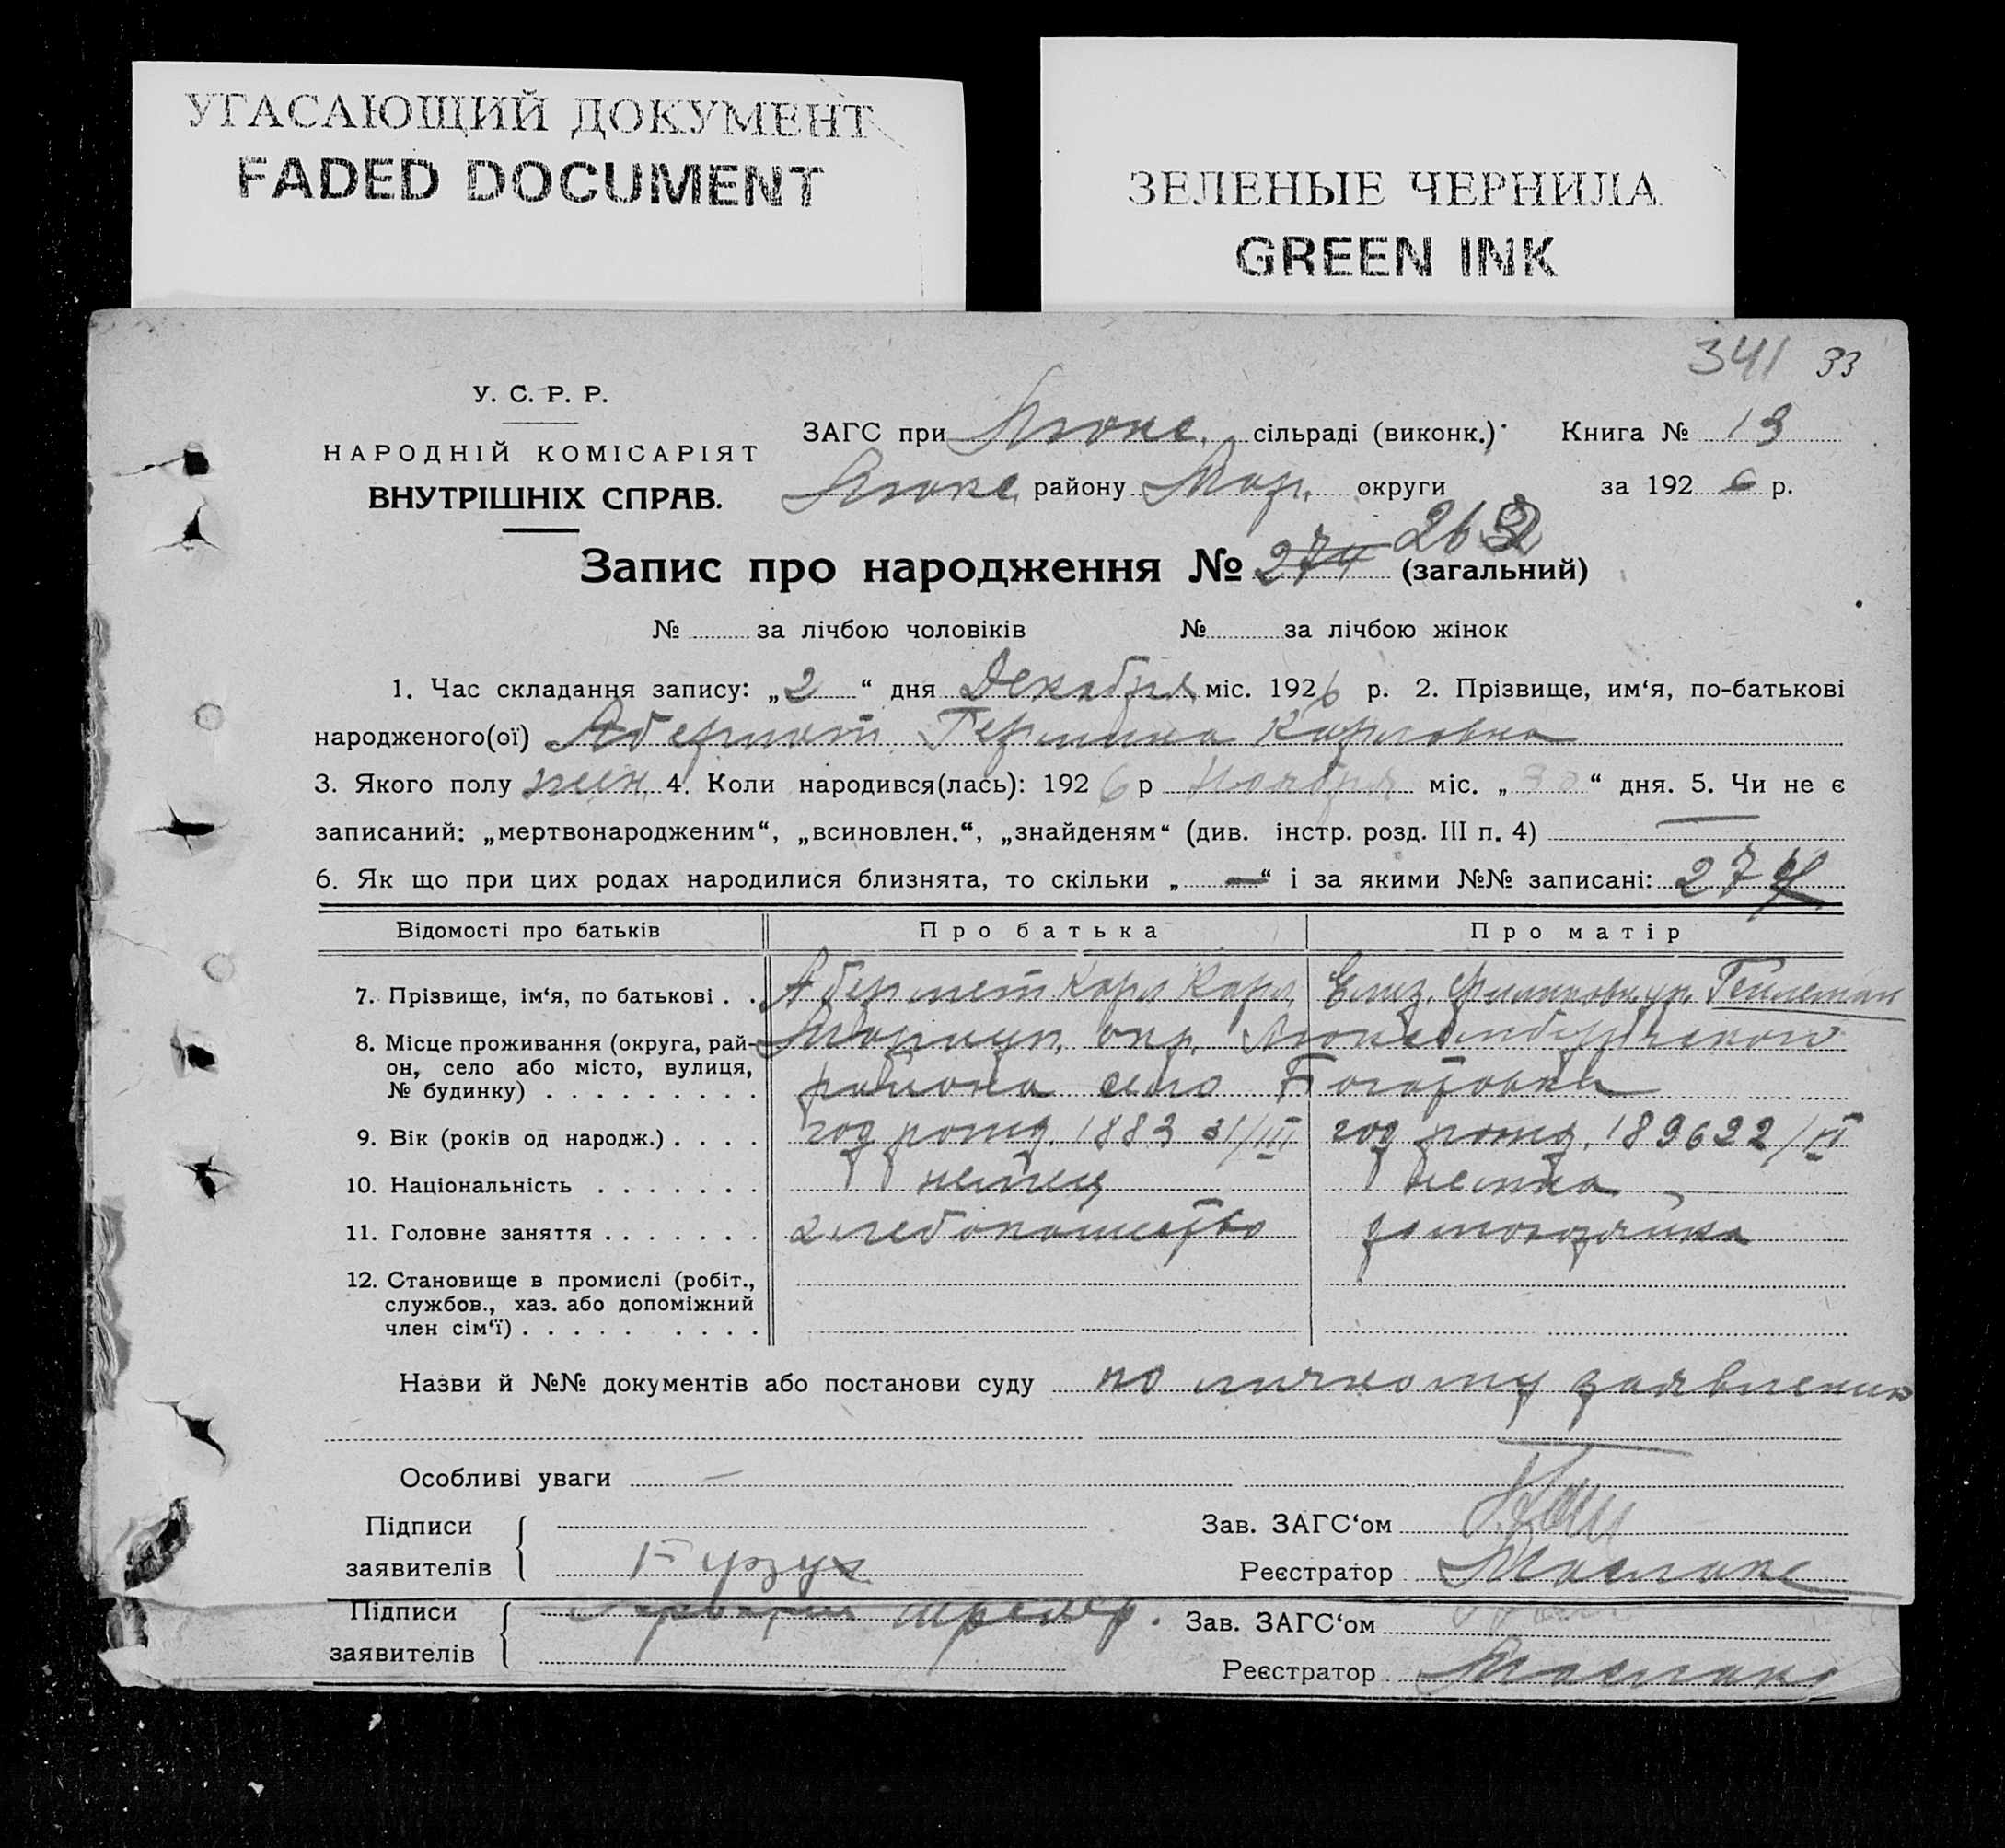 УГАСАЮЩИЙ ДОКУМЕНТ
FADED DOCUMENT
ЗЕЛЕНЫЕ ЧЕРНИЛА
GREEN INK
341 33
У. С. Р. Р.
НАРОДНІЙ КОМІСАРІЯТ
ВНУТРІШНІХ СПРАВ.
ЗАГС при Люкс. сільраді (виконк.) Книга № 13
Люкс. району Мар. округи за 1926 р.
Запис про народження № 274 263 (загальний)
№ за лічбою чоловіків № за лічбою жінок
1. Час складання запису: „2“ дня Декабря міс. 1926 р. 2. Прізвище, им‘я, по-батькові
народженого(ої) Абермет Гермина Карловна
3. Якого полу жен. 4. Коли народився(лась): 1926 р Ноября міс. „30“ дня. 5. Чи не є
записаний: „мертвонародженим“, „всиновлен.“, „знайденям“ (див. інстр. розд. III п. 4) —
6. Як що при цих родах народилися близнята, то скільки „—“ і за якими №№ записані: 274
Відомості про батьків Про батька Про матір
7. Прізвище, ім‘я, по батькові . . Абермет Карл Карл. Елиз. Филиповн. ур.
8. Місце проживання (округа, рай-
он, село або місто, вулиця,
№ будинку) . . . . . . . . .
Мариуп. окр. Люксембургского
района село Гогаровка
9. Вік (років од народж.) . . . . год рожд. 1883 31/III год рожд. 1896 22/VI
10. Національність . . . . . . . немец немка
11. Головне заняття . . . . . . . хлебопашество домохозяйка
12. Становище в промислі (робіт.,
службов., хаз. або допоміжний
член сім‘ї) . . . . . . . . .
Назви й №№ документів або постанови суду по личному заявлению
Особливі уваги —
Підписи
заявителів
Зав. ЗАГС‘ом
Реєстратор
Підписи
заявителів
Зав. ЗАГС‘ом
Реєстратор